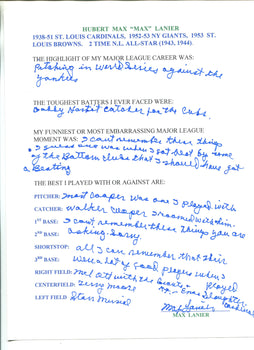 HUBERT MAX "MAX" LANIER
1938-51 ST. LOUIS CARDINALS, 1952-53 NY GIANTS, 1953 ST.
LOUIS BROWNS. 2 TIME N.L. ALL-STAR (1943, 1944).
THE HIGHLIGHT OF MY MAJOR LEAGUE CAREER WAS:
Pitching in World Series against the
yankees
THE TOUGHEST BATTERS I EVER FACED WERE:
Gabby Hartnet catcher for the Cubs.
MY FUNNIEST OR MOST EMBARRASSING MAJOR LEAGUE
MOMENT WAS: I can't remember these things
I guess one was when I got beat by some
of the Bottom clubs that I should have got
a Beating
THE BEST I PLAYED WITH OR AGAINST ARE:
PITCHER: mort Cooper was one I played with
CATCHER: walker Cooper I roomed with him.
1ST BASE: I cant remember these things you are
2ND BASE: asking. Sorry
SHORTSTOP: all I can remember that their
3RD BASE: were a lot of good players when I
played
RIGHT FIELD: Mel Ott with the Giants
CENTERFIELD: Terry Moore Mr. Enos Slaughter
Cardinals
LEFT FIELD Stan Musial
Max Lanier
MAX LANIER